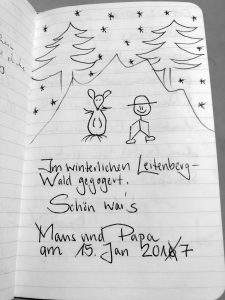 Im winterlichen Leitenberg-
Wald gegogert.
Schön war's
Maus und Papa
am 15. Jan 2017